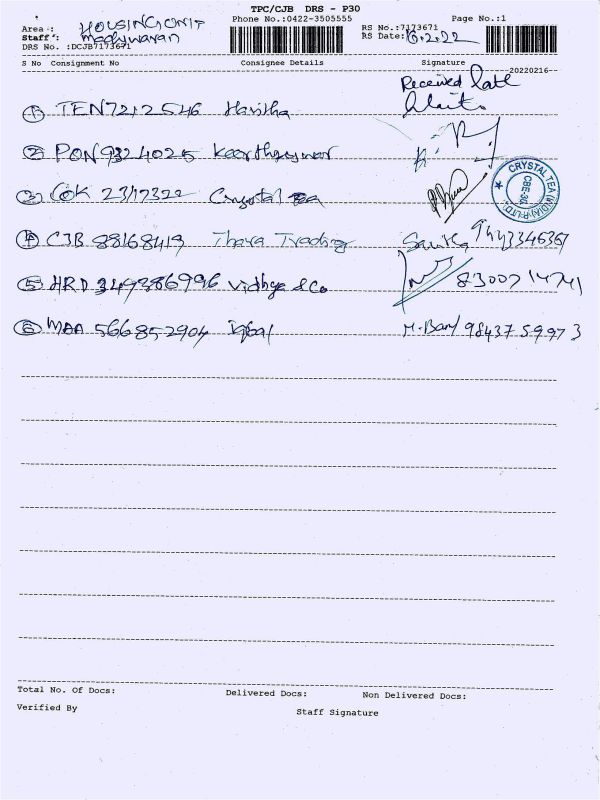 TPC/CJB DRS - P30
Area : HOUSINGUNIT
Phone No.:0422-3505555
Page No.:1
Staff:
RS No.:7173671
DRS No. :DCJB7173671
RS Date: 16.2.22
20220216
S No Consignment No Consignee Details Signature
Received late
1 TEN 72,2546 Haritha
2 PON 9324025
3 COK 2317322 Crystal Tea
CRYSTAL TEA (INDIA) (P) LTD.
4 CJB 88168419 Thara Trading
5 HRD 349386996 Vidhya & Co 8300714741
6 MAA 566852904 iqbal 98437 59973
Total No. Of Docs: Delivered Docs: Non Delivered Docs:
Verified By
Staff Signature